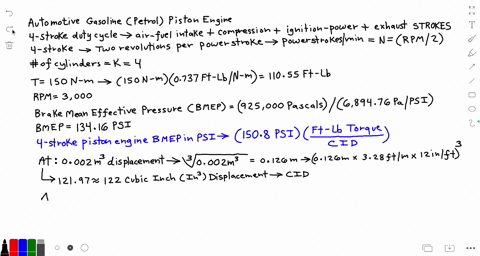 Automotive Gasoline (Petrol) Piston Engine
4-stroke duty cycle → air-fuel intake + compression + ignition-power + exhaust STROKES
4-stroke → Two revolutions per power stroke → powerstrokes/min = N = (RPM/2)
# of cylinders = K = 4
T = 150 N-m → (150 N-m)(0.737 Ft-Lb/N-m) = 110.55 Ft-Lb
RPM = 3,000
Brake Mean Effective Pressure (BMEP) = (925,000 Pascals) / (6,894.76 Pa/PSI)
BMEP = 134.16 PSI
4-stroke piston engine BMEP in PSI → (150.8 PSI) (Ft-Lb Torque / CID)
At: 0.002 m³ displacement → ∛0.002m³ = 0.126m → (0.126m × 3.28 ft/m × 12 in/ft)³
↳ 121.97 ≈ 122 Cubic Inch (In³) Displacement → CID